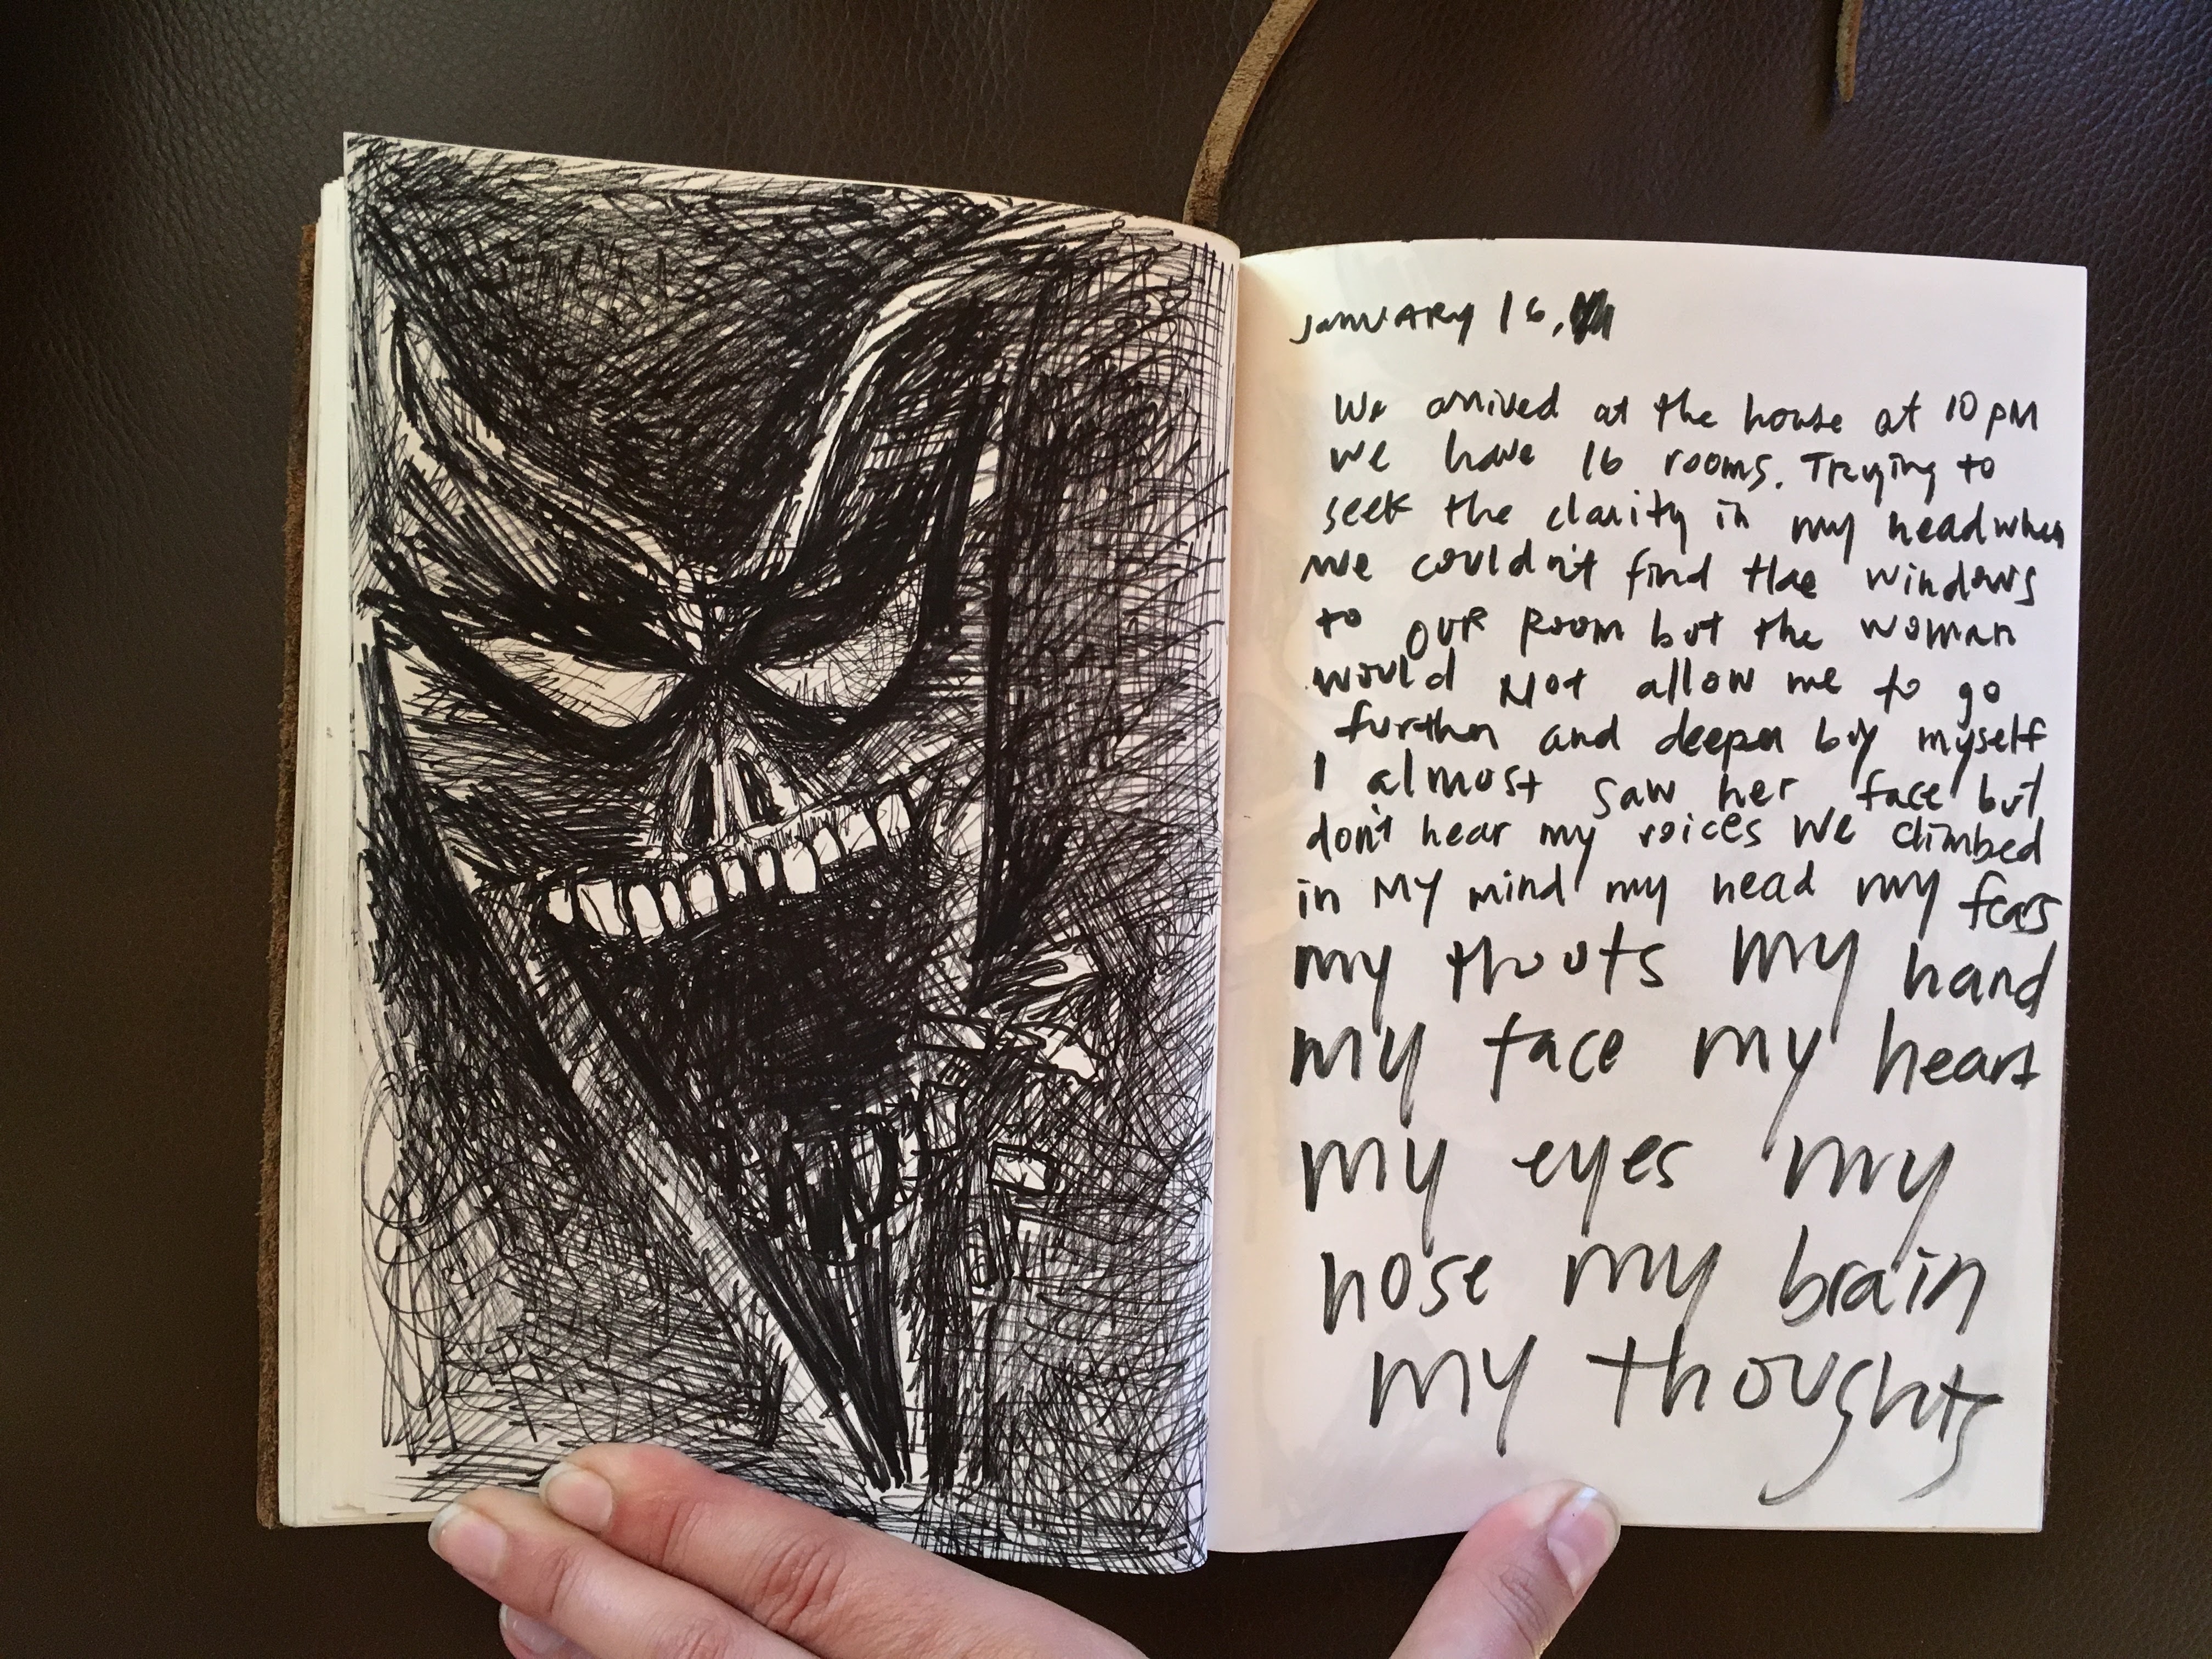 JANUARY 16,
We arrived at the house at 10 PM
we have 16 rooms. Trying to
seek the clarity in my head when
we couldn't find the windows
to OUR ROOM but the woman
would Not allow me to go
further and deeper by myself
I almost saw her face but
don't hear my voices We climbed
in MY mind my head my fears
my thouts my hand
my face my heart
my eyes my
nose my brain
my thoughts